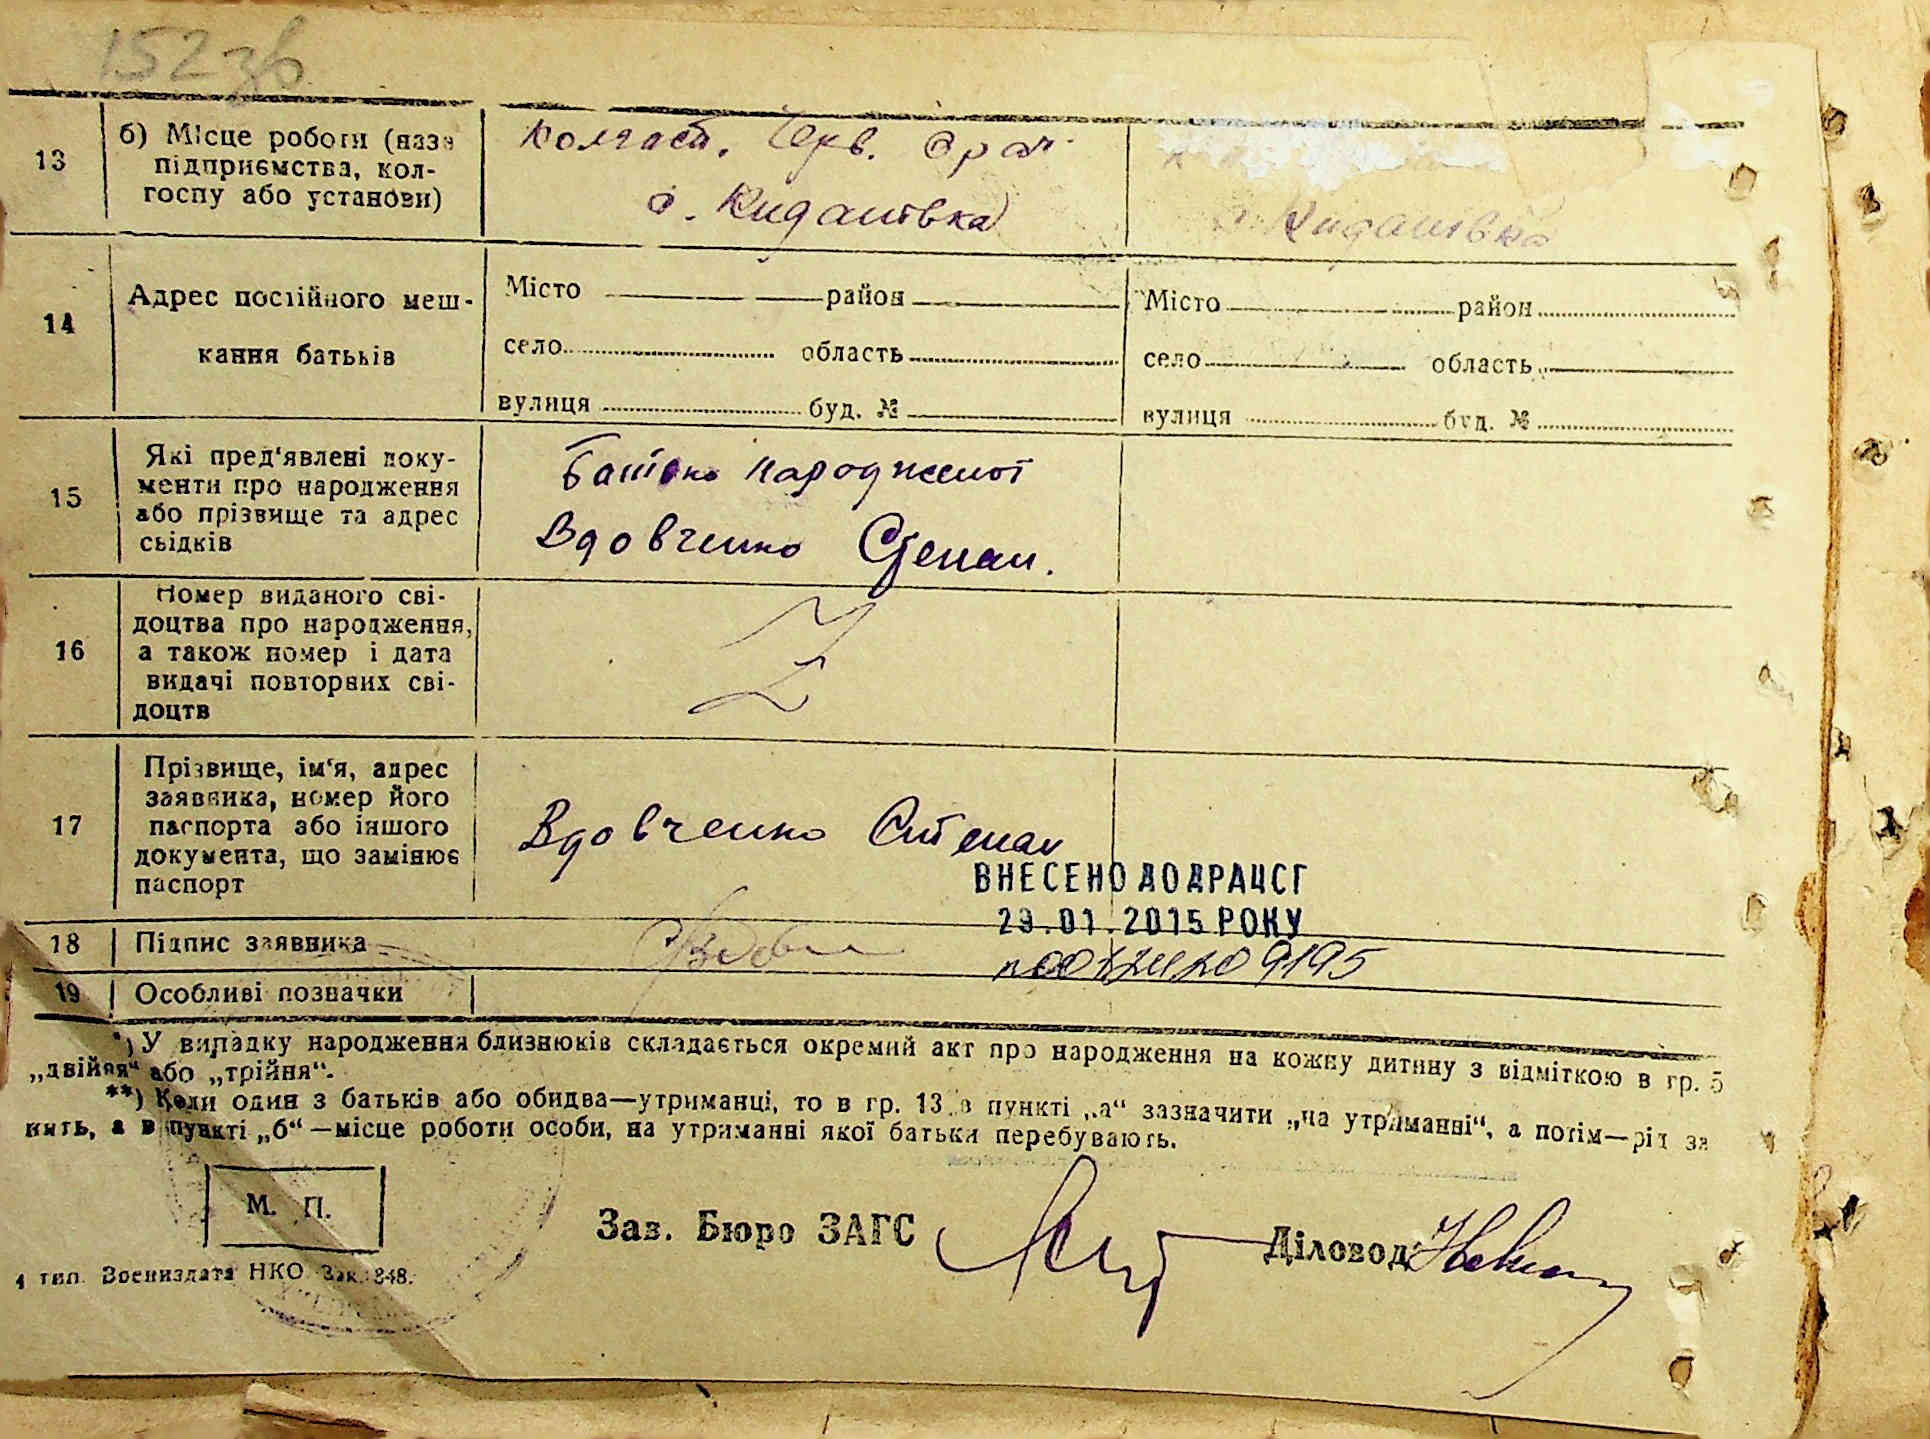 152 зв
13
б) Місце роботи (назва
підприємства, кол-
госпу або установи)
Колгосп. Черв.
с. Кидашівка
с. Кидашівка
14
Адрес постійного меш-
кання батьків
Місто район
село область
вулиця буд. №
Місто район
село область
вулиця буд. №
15
Які пред'явлені доку-
менти про народження
або прізвище та адрес
свідків
Батько народженої
Вдовченко Степан.
16
Номер виданого сві-
доцтва про народження,
а також номер і дата
видачі повторних сві-
доцтв
17
Прізвище, ім'я, адрес
заявника, номер його
паспорта або іншого
документа, що замінює
паспорт
Вдовченко Степан
ВНЕСЕНО ДО ДРАЦСГ
29.01.2015 РОКУ
9195
18
Підпис заявника
19
Особливі позначки
*) У випадку народження близнюків складається окремий акт про народження на кожну дитину з відміткою в гр. 5
„двійня“ або „трійня“.
**) Коли один з батьків або обидва—утриманці, то в гр. 13 в пункті „а“ зазначити „на утриманні“, а потім—рід за
нять, а в пункті „б“—місце роботи особи, на утриманні якої батьки перебувають.
М. П.
Зав. Бюро ЗАГС
Діловод
4 тип. Воениздата НКО Зак. 348.